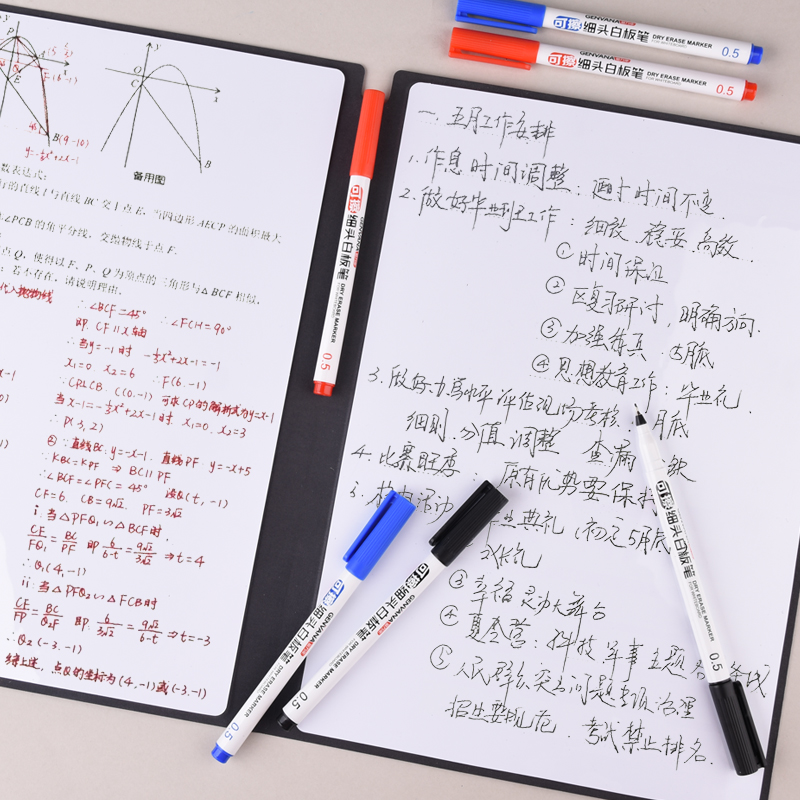 y
P
A
E
F(6,-1)
B(9,-10)
y=-⅓x²+2x-1
y
O
C
x
B
备用图
数表达式；
行的直线l与直线BC交于点E，当四边形AECP的面积最大
∠PCB的角平分线，交抛物线于点F.
点Q，使得以F、P、Q为顶点的三角形与△BCF相似，
；若不存在，请说明理由.
代入抛物线
∴∠BCF=45° ∴∠FCH=90°
即 CF∥x轴
∴当y=-1时 -⅓x²+2x-1=-1
x₁=0 x₂=6 ∴F(6,-1)
∵CP⊥CB. C(0,-1) 可求CP的解析式为y=x-1
当x-1=-⅓x²+2x-1时. x₁=0. x₂=3
∴P(3,2)
② ∵直线BC:y=-x-1. 直线PF:y=-x+5
∵KBC=KPF ⇒ BC∥PF
∴∠BCF=∠PFC=45° 设Q(t,-1)
CF=6. CB=9√2. PF=3√2
i.当△PFQ₁∽△BCF时.
CF/FQ₁=BC/PF 即 6/6-t=9√2/3√2 ⇒t=4
∴Q₁(4,-1)
ii:当△PFQ₂∽△FCB时
CF/FP=BC/Q₂F 即:6/3√2=9√2/6-t ⇒t=-3
∴Q₂(-3,-1)
综上述，点Q的坐标为(4,-1)或(-3,-1)
可擦细头白板笔
GENVANA
DRY ERASE MARKER
FOR WHITEBOARD
0.5
可擦细头白板笔
GENVANA
DRY ERASE MARKER
FOR WHITEBOARD
0.5
可擦细头白板笔
DRY ERASE MARKER
0.5
一. 五月工作安排
1. 作息时间调整：时间不变.
2. 做好毕业班工作：细致. 稳妥. 高效.
① 时间保证
② 区复习研讨，明确方向.
③ 加强仿真. 5月底
④ 思想教育工作：毕业礼.
3. 做好办学水平评估现场 月底
细则. 分值调整 查漏 缺
4. 比赛旺季：原有优势要保持
5. 校内活动 毕业典礼(初定5月底
礼
③ 幸福灵动大舞台
④ 夏令营：科技 军事 主题 条线
⑤ 人民群众突出问题专项治理
招生要规范. 考试禁止排名.
可擦细头白板笔
GENVANA
DRY ERASE MARKER
0.5
可擦细头白板笔
GENVANA
DRY ERASE MARKER
0.5
可擦细头白板笔
DRY ERASE MARKER
FOR WHITEBOARD
0.5